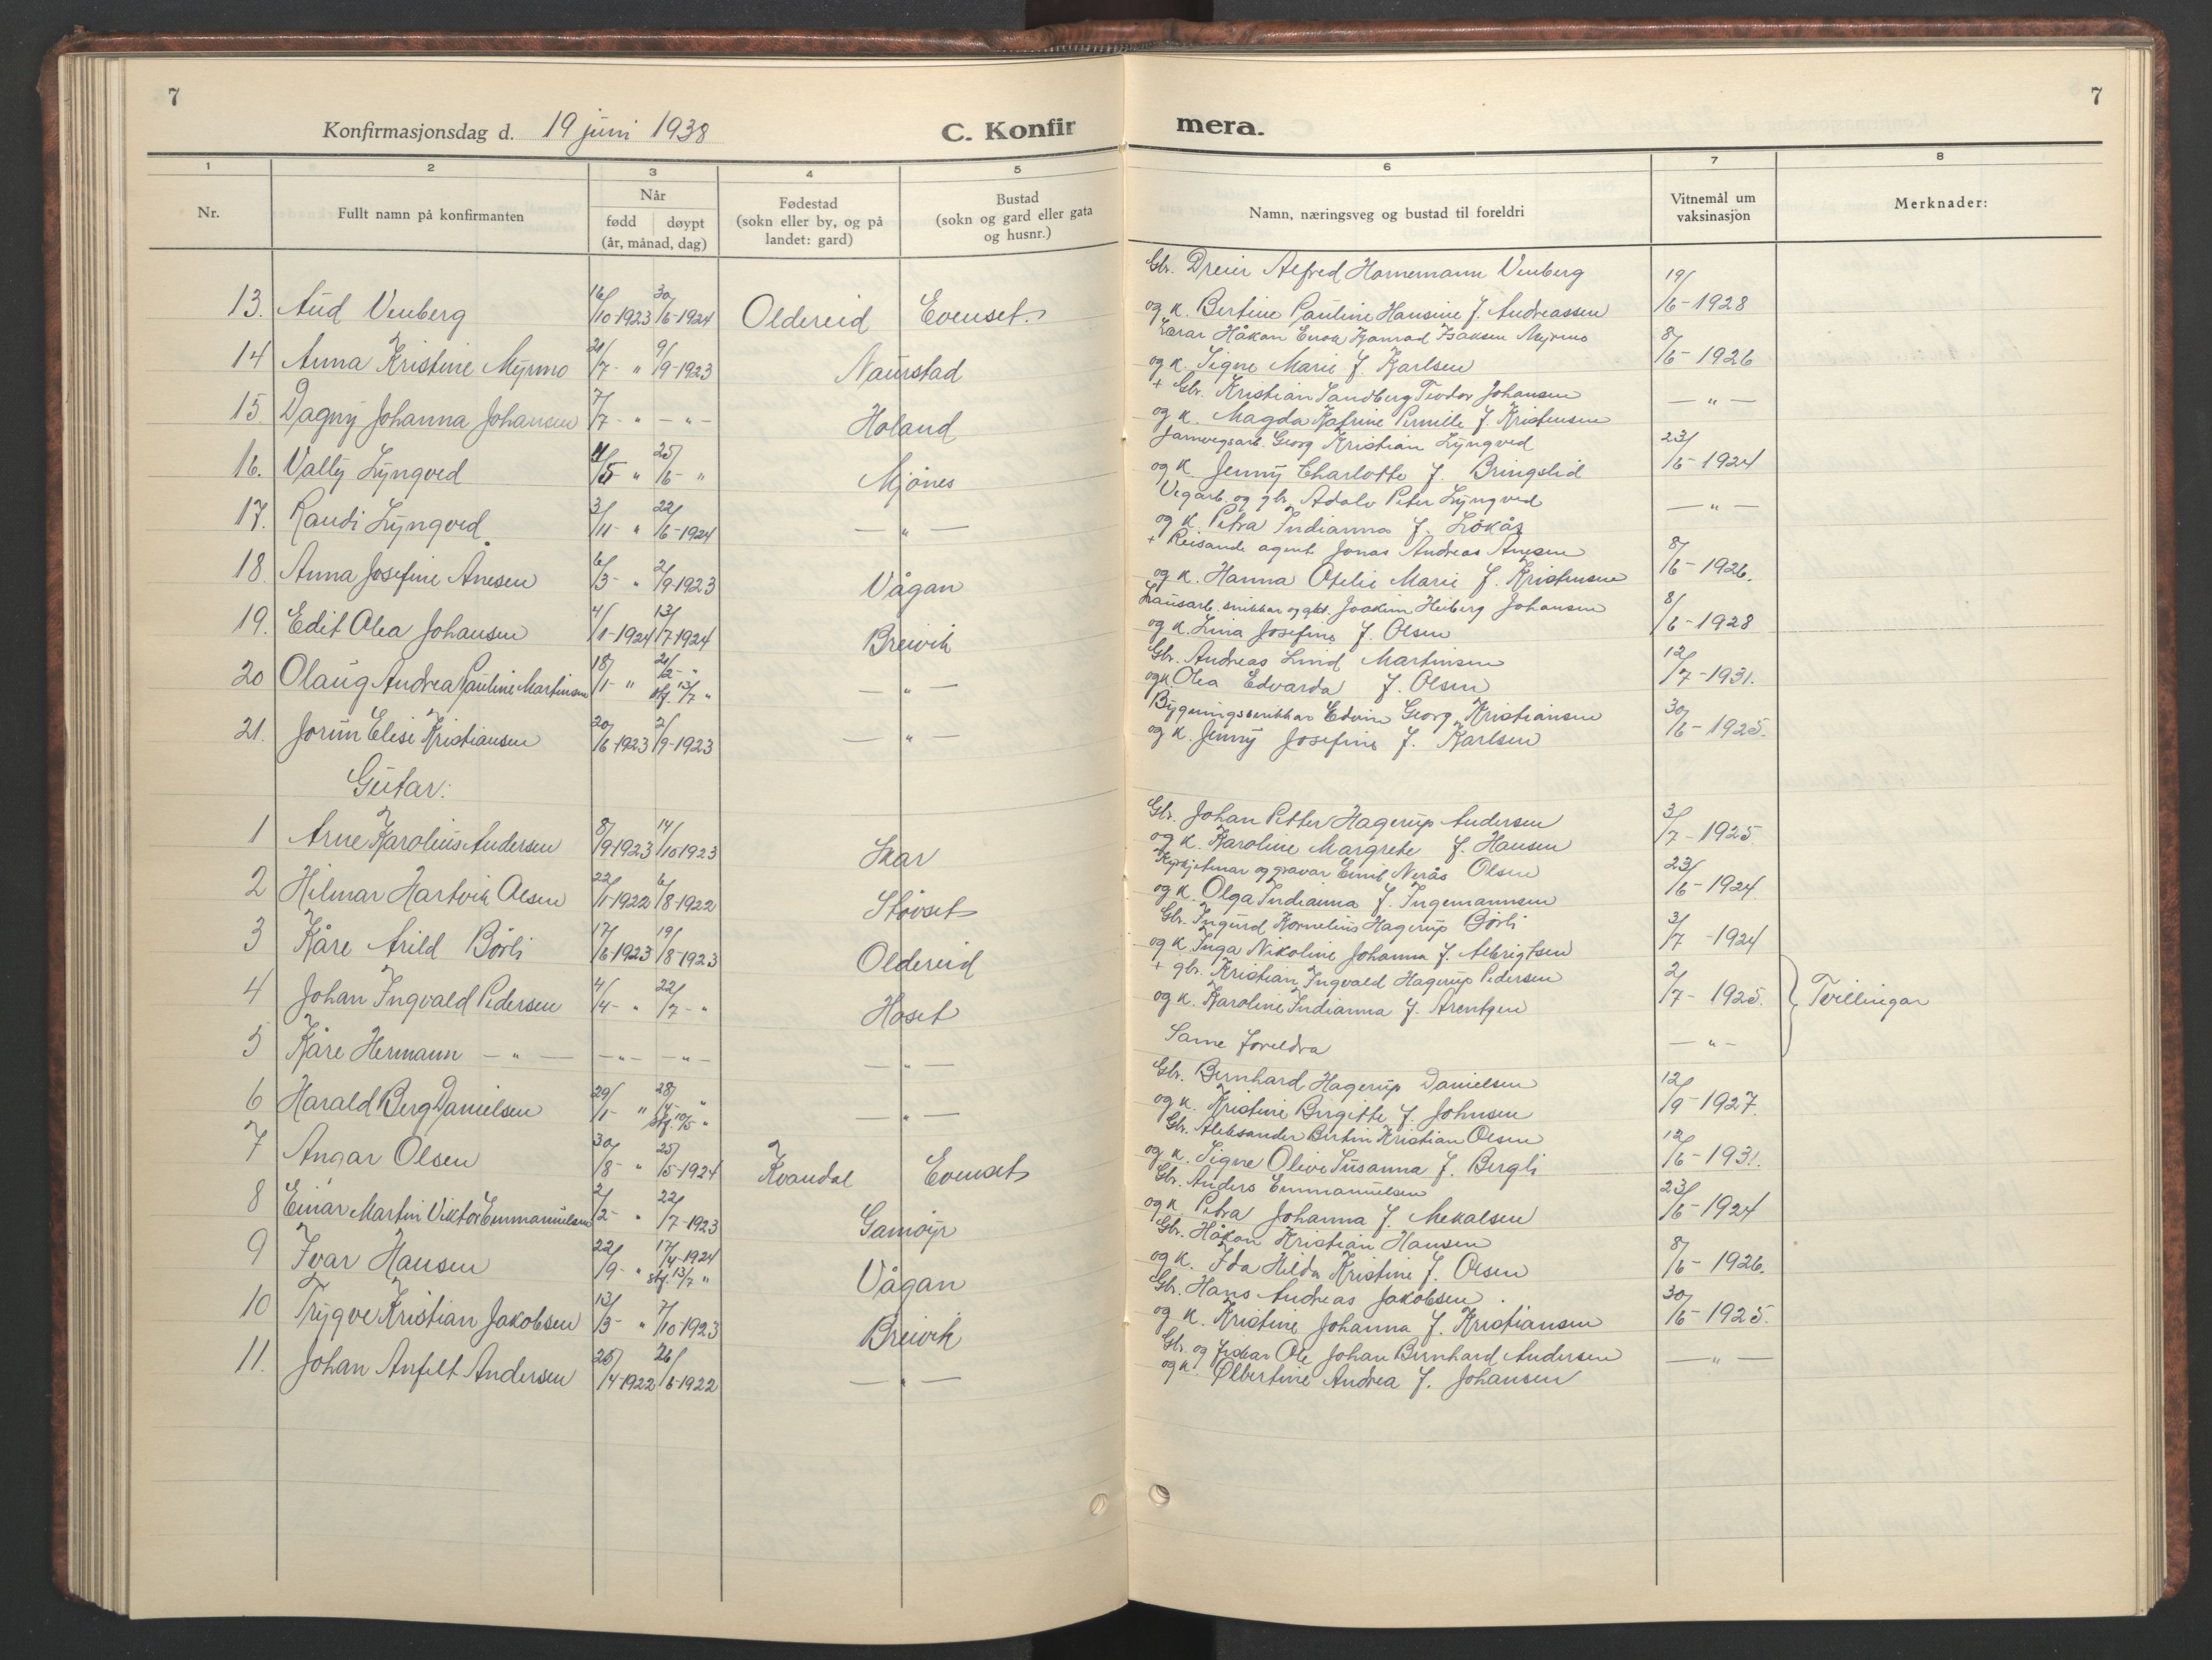 7
Konfirmasjonsdag d. 19 juni 1938
C. Konfirmera.
7
1 2 3 4 5 6 7 8
Nr.
Fullt namn på konfirmanten
Når
fødd døypt
(år, månad, dag)
Fødestad
(sokn eller by, og på
landet: gard)
Bustad
(sokn og gard eller gata
og husnr.)
Namn, næringsveg og bustad til foreldri
Vitnemål um
vaksinasjon
Merknader:
13. Aud Venberg 16/10-1923 30/6-1924 Oldereid Evenset. Gbr. Dreier Alfred Hornemann Venberg 19/6-1928
og k. Bertine Pauline Hansine f. Andreassen
14 Anna Kristine Myrmo 21/7- " 9/9-1923 Naurstad Lærar Håkon Enok Konrad Isaksen Myrmo 8/6-1926
og k. Signe Marie f. Karlsen
15. Dagny Johanna Johansen 7/7- " — " — Holand + Gbr. Kristian Sandberg Teodor Johansen — " —
og k. Magda Katrine Pernille f. Kristensen
16. Vally Lyngved 11/5 " 25/6- " Mjönes Jarnvegsarb. Georg Kristian Lyngved 23/6-1924
og k. Jenny Charlotte f. Bringslid
17. Randi Lyngved 3/11- " 22/6-1924 — " — Vegarb. og gbr. Adolv Peter Lyngved — " —
og k. Petra Indianna f. Lökås
18. Anna Josefine Anesen 6/3- " 2/9-1923 Vågan + Reisande agent Jonas Andreas Anesen 8/6-1926.
og k. Hanna Otelie Marie f. Kristensen
19. Edit Olea Johansen 4/1-1924 13/7-1924 Breivik Lausarb. snikkar og gbr. Joakim Heiberg Johansen 8/6-1928
og k. Lina Josefine f. Olsen
20 Olaug Andrea Pauline Martinsen 18/1- " 21/2- " stf. 13/7 " — " — Gbr. Andreas Lind Martinsen 12/7-1931.
og k. Olea Edvarda f. Olsen
21. Jorun Elise Kristiansen 20/6-1923 2/9-1923 — " — Bygningssnikkar Edvin Georg Kristiansen 30/6-1925.
og k. Jenny Josefine f. Karlsen
Gutar:
1 Arne Karolius Andersen 8/9-1923 14/10-1923 Skar Gbr. Johan Petter Hagerup Andersen 3/7-1925.
og k. Karoline Margrete f. Hansen
2 Hilmar Hartvik Olsen 22/1-1922 6/8-1922 Stövset Kyrkjetenar og gravar Emil Nerås Olsen 23/6-1924
og k. Olga Indianna f. Ingemannsen
3 Kåre Arild Börli 17/6-1923 19/8-1923 Oldereid Gbr. Ingurd Kornelius Hagerup Börli 3/7-1924
og k. Inga Nikoline Johanna f. Albrigtsen
4 Johan Ingvald Pedersen 4/4- " 22/7- " Hoset + gbr. Kristian Ingvald Hagerup Pedersen 2/7-1925. Tvillingar
og k. Karoline Indianna f. Arentzen
5 Kåre Hermann — " — — " — — " — — " — Same foreldra — " —
6 Harald Berg Danielsen 29/1- " 28/4- " stf. 10/5 " — " — Gbr. Bernhard Hagerup Danielsen 12/9-1927.
og k. Kristine Birgitte f. Johnsen
7 Angar Olsen 30/8- " 25/5-1924 Kvandal Evenset Gbr. Aleksander Bertin Kristian Olsen 12/6-1931.
og k. Signe Olive Susanna f. Bergli
8 Einar Martin Viktor Emmanuelsen 2/2- " 22/7-1923 Gamöyr Gbr. Anders Emmanuelsen 23/6-1924
og k. Petra Johanna f. Mekalsen
9 Ivar Hansen 22/9- " 17/4-1924 stf. 13/7 " Vågan Gbr. Håkon Kristian Hansen 8/6-1926.
og k. Ida Hilda Kristine f. Olsen
10 Trygve Kristian Jakobsen 13/3- " 7/10-1923 Breivik Gbr. Hans Andreas Jakobsen 30/6-1925.
og k. Kristine Johanna f. Kristiansen
11. Johan Anfelt Andersen 25/4-1922 26/6-1922 — " — Gbr. og fiskar Ole Johan Bernhard Andersen — " —
og k. Olbertine Andrea f. Johansen